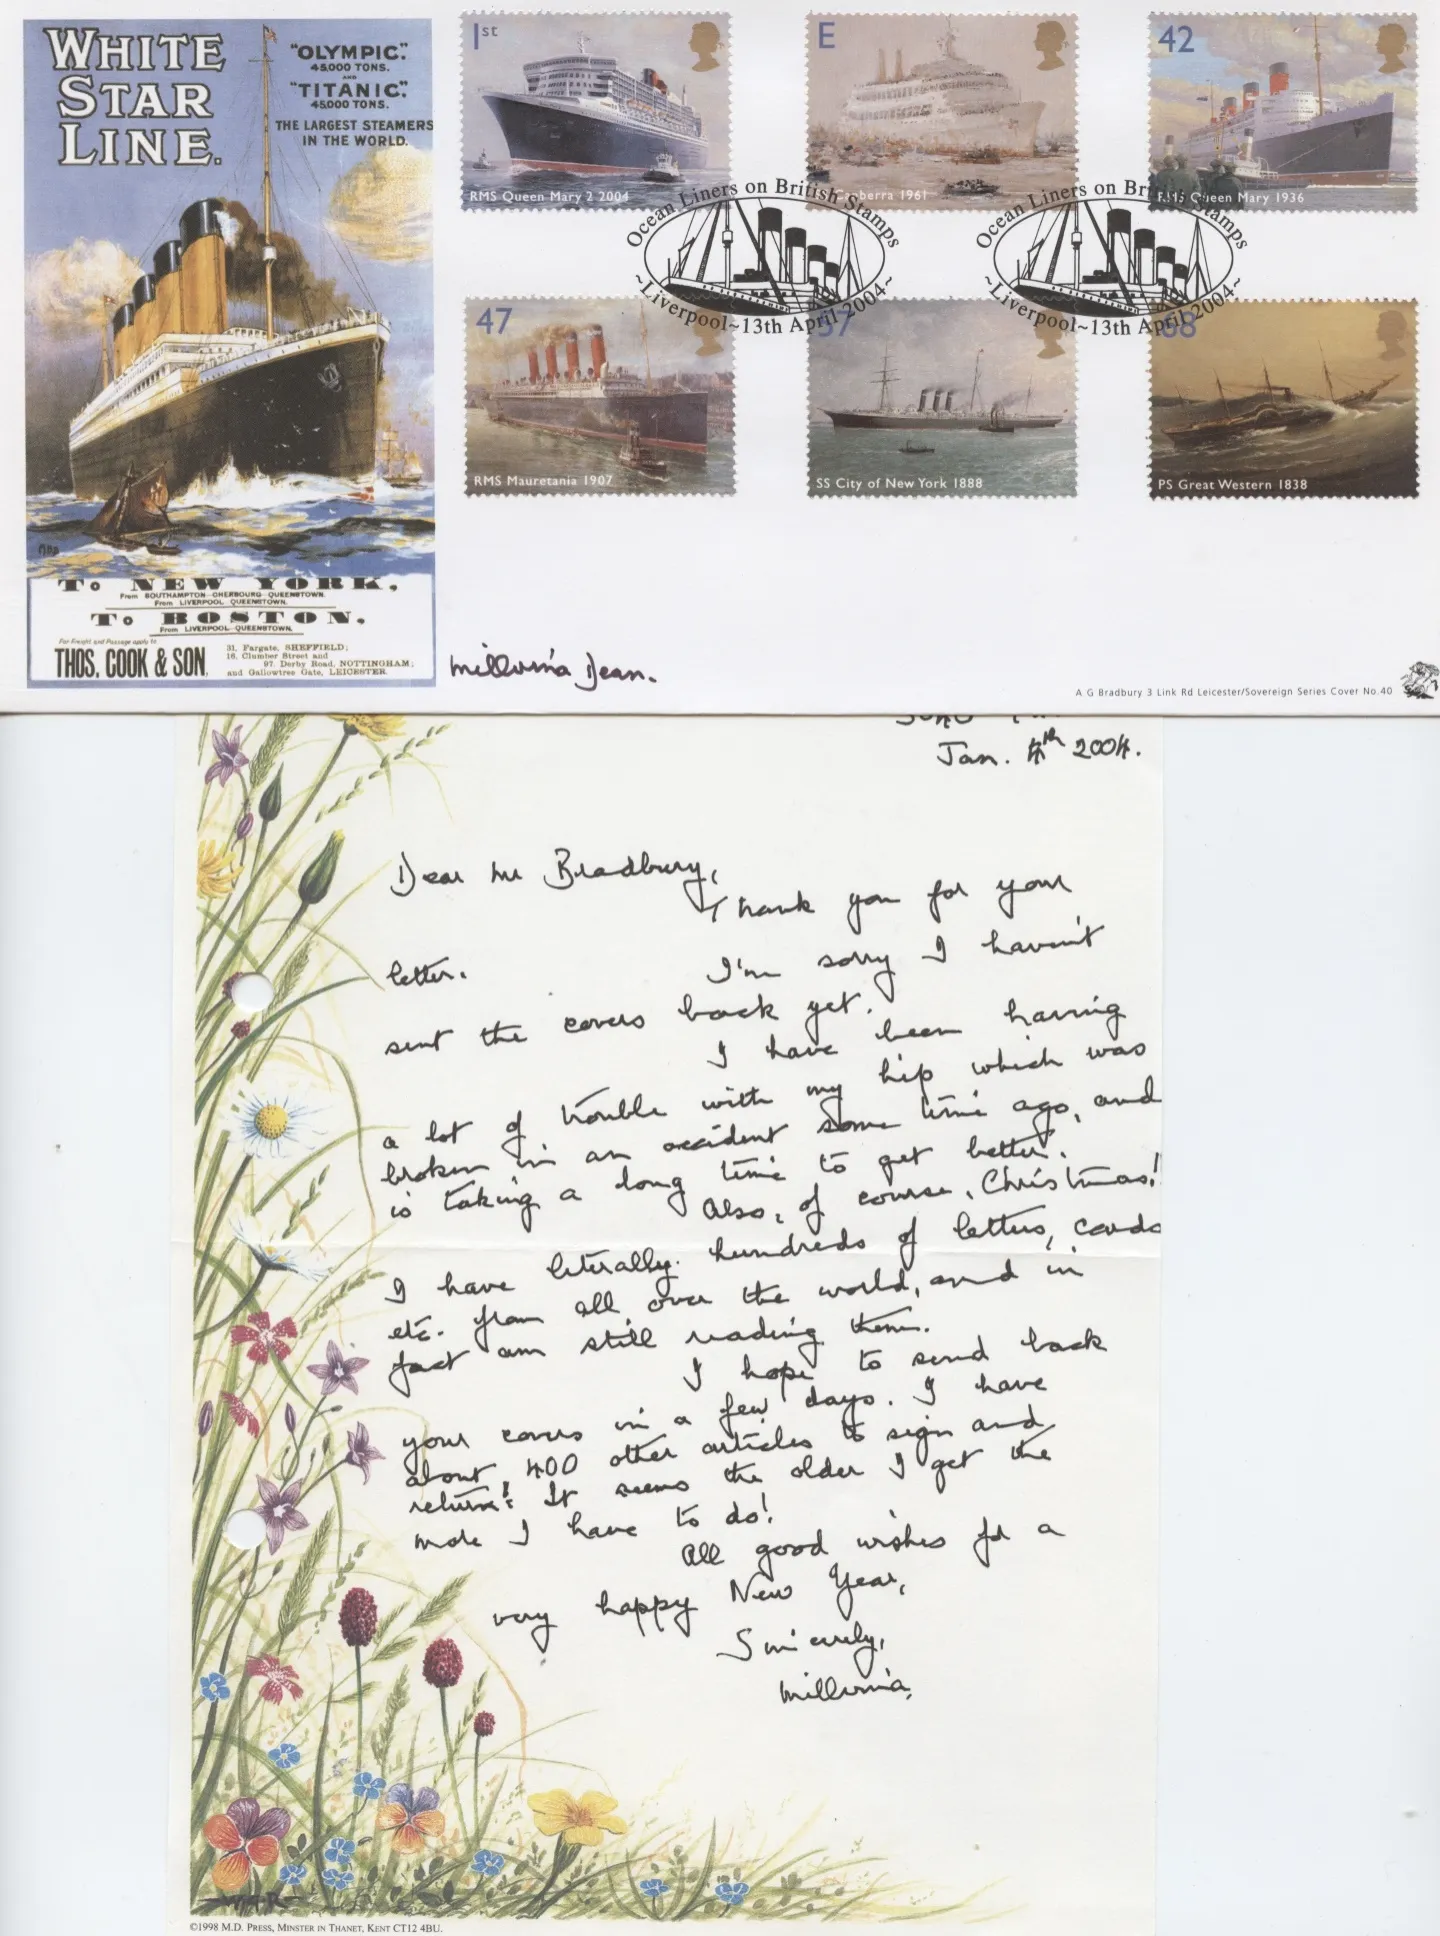 WHITE
STAR
LINE.
"OLYMPIC."
45,000 TONS.
AND
"TITANIC."
45,000 TONS.
THE LARGEST STEAMERS
IN THE WORLD.
To NEW YORK,
From SOUTHAMPTON-CHERBOURG-QUEENSTOWN.
From LIVERPOOL QUEENSTOWN.
To BOSTON,
From LIVERPOOL-QUEENSTOWN.
For Freight and Passage apply to
THOS. COOK & SON,
31, Fargate, SHEFFIELD;
16, Clumber Street and
97, Derby Road, NOTTINGHAM;
and Gallowtree Gate, LEICESTER.
1st
RMS Queen Mary 2 2004
E
Canberra 1961
42
RMS Queen Mary 1936
Ocean Liners on British Stamps
~Liverpool~13th April 2004~
Ocean Liners on British Stamps
~Liverpool~13th April 2004~
47
RMS Mauretania 1907
57
SS City of New York 1888
68
PS Great Western 1838
Millvina Dean.
A G Bradbury 3 Link Rd Leicester/Sovereign Series Cover No.40
Jan. 4th 2004.
Dear Mr Bradbury,
Thank you for your
letter.
I'm sorry I haven't
sent the covers back yet.
I have been having
a lot of trouble with my hip which was
broken in an accident some time ago, and
is taking a long time to get better.
Also, of course, Christmas!
I have literally hundreds of letters, cards
etc. from all over the world, and in
fact am still reading them.
I hope to send back
your covers in a few days. I have
about 400 other articles to sign and
return! It seems the older I get the
more I have to do!
All good wishes for a
very happy New Year,
Sincerely,
Millvina.
©1998 M.D. PRESS, MINSTER IN THANET, KENT CT12 4BU.